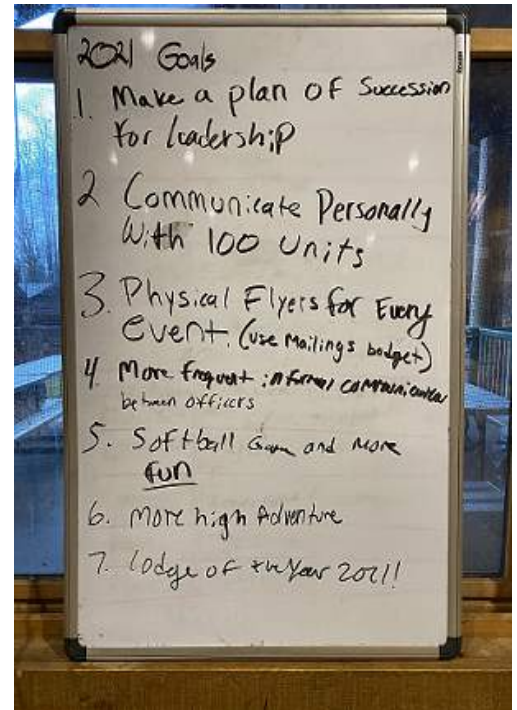 2021 Goals
1. Make a plan of Succession
for leadership
2 Communicate Personally
With 100 Units
3. Physical Flyers for Every
event. (use Mailings budget)
4. More frequent informal communication
between officers
5. Softball Game and More
fun
6. More high Adventure
7. lodge of the Year 2021!